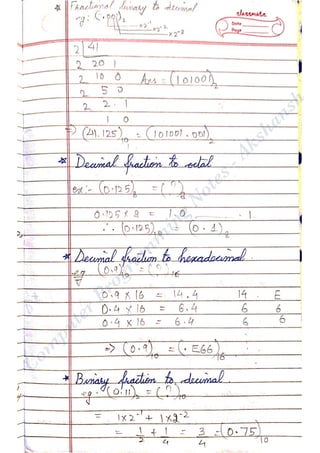 * Fractional binary to decimal
classmate
Date
Page
eg: (.00)₂
×2⁻¹
×2⁻²
×2⁻³
2 | 41
2 20 1
2 10 0 Ans = (101001)₂
2 5 0
2 2 . 1
1 0
⇒ (41.125)₁₀ = (101001.001)₂
* Decimal fraction to octal
ex:- (0.125)₈ = (?)₈
0.125 × 8 = 1.0 . 1
∴ (0.125)₁₀ = (0.1)₈
* Decimal fraction to hexadecimal.
eg (0.9)₁₀ = (?)₁₆
0.9 × 16 = 14.4 14 E
0.4 × 16 = 6.4 6 6
0.4 × 16 = 6.4 6 6
⇒ (0.9)₁₀ = (.E66)₁₆
* Binary fraction to decimal.
eg. (0.11)₂ = (?)₁₀
= 1×2⁻¹ + 1×2⁻²
= 1/2 + 1/4 = 3/4 = (0.75)₁₀
Computer Programming Notes - Akshansh